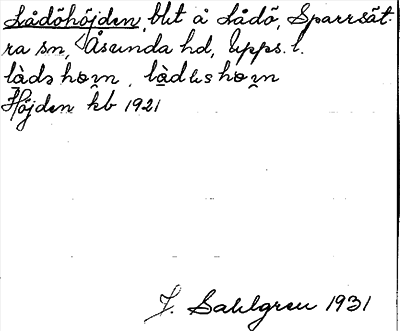 Lådöhöjden, blt å Lådö, Sparrsät-
ra sn, Åsunda hd, Upps. l.
Höjden kb 1921
J. Sahlgren 1931